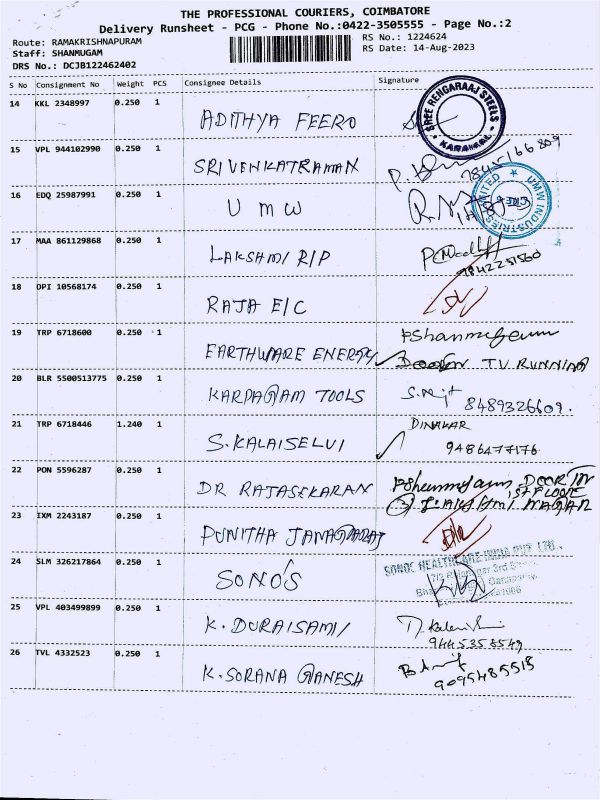 THE PROFESSIONAL COURIERS, COIMBATORE
Delivery Runsheet - PCG - Phone No.:0422-3505555 - Page No.:2
Route: RAMAKRISHNAPURAM RS No.: 1224624
Staff: SHANMUGAM RS Date: 14-Aug-2023
DRS No.: DCJB122462402
S No AWB Number Weight PCS Consignee Details Signature
14 KKL 2348997 0.250 1 ADITHYA FEERO SREE RENGARAAJ STEELS KARAIKAL
15 VPL 944102990 0.250 1 SRIVENKATRAMAN 7845166809
16 EDQ 25987991 0.250 1 UMW UMW INDUSTRIES
17 MAA 861129868 0.250 1 LAKSHMI RIP 9842251560
18 OPI 10568174 0.250 1 RAJA E/C
19 TRP 6718600 0.250 1 EARTHWARE ENERGY PShanmugam
T.V. RUNNING
20 BLR 5500513775 0.250 1 KARPAGAM TOOLS 8489326609.
21 TRP 6718446 1.240 1 S. KALAISELVI DINAKAR
9486477176
22 PON 5596287 0.250 1 DR RAJASEKARAN PShanmugam DOOR IN
1ST FLOOR
23 IXM 2243187 0.250 1 PUNITHA
24 SLM 326217864 0.250 1 SONO'S HEALTHCARE INDIA PVT LTD.,
25 VPL 403499899 0.250 1 K. DURAISAMI
9445353549
26 TVL 4332523 0.250 1 K. SORANA GANESH
9095485515